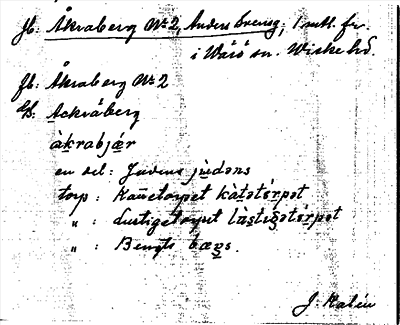 Jb. Åkraberg Nº 2, Anders Svensg, 1 mtl. fr.
i Värö sn. Viske hd.
Jb: Åkraberg Nº 2
Gb: Ackråberg
àkrabjær
en del: Judens jùdəns
torp: Kanetorpet kàtətórpət
" : Lustigetorpet lùstigətórpət
" : Bengts bæŋs.
J. Kalén